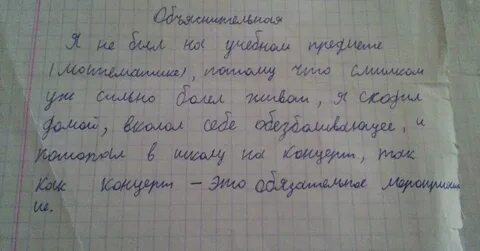 Объяснительная
Я не был на учебном предмете
(математике), потому что слишком
уж сильно болел живот, я сходил
домой, вколол себе обезбаливающее, и
потопал в школу на концерт, так
как концерт – это обязательное мероприяти
ие.